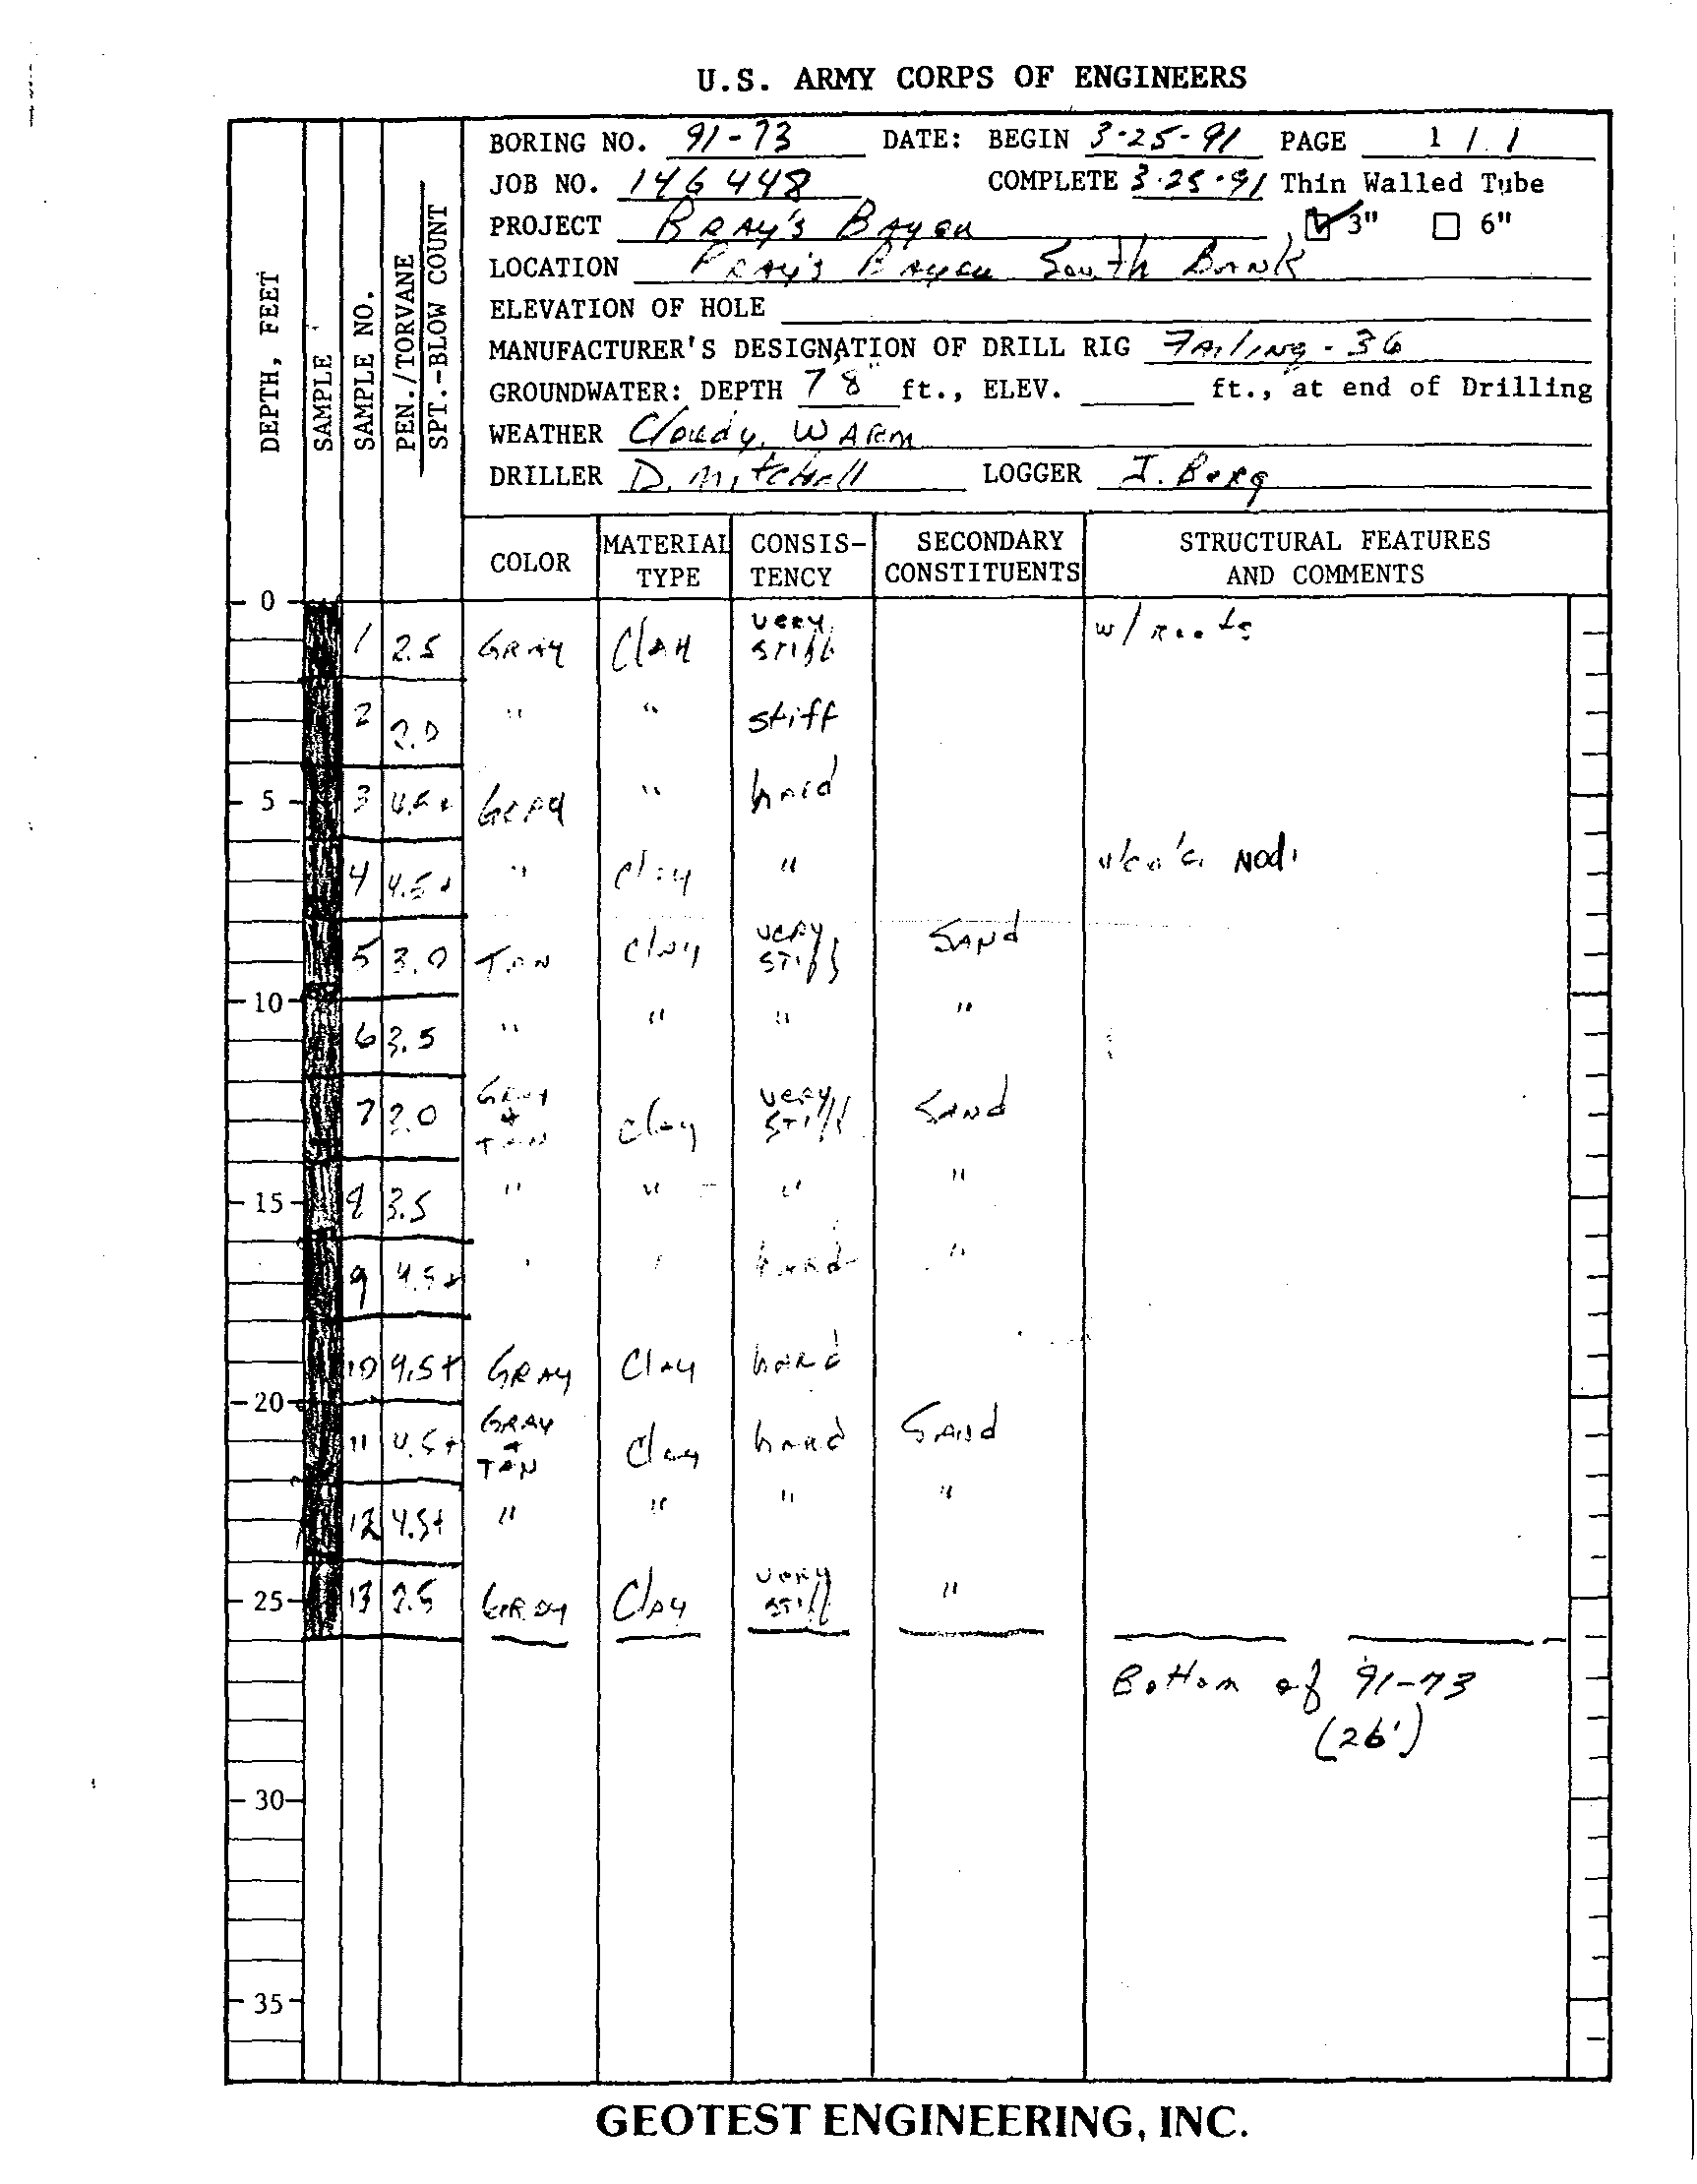 U.S. ARMY CORPS OF ENGINEERS
BORING NO. 91-73 DATE: BEGIN 3-25-91 PAGE 1 / 1
JOB NO. 146448 COMPLETE 3-25-91 Thin Walled Tube
PROJECT BRAY'S BAYOU 3" 6"
LOCATION BRAY'S BAYOU South BANK
ELEVATION OF HOLE
MANUFACTURER'S DESIGNATION OF DRILL RIG FAILING - 36
GROUNDWATER: DEPTH 7'8" ft., ELEV. ft., at end of Drilling
WEATHER Cloudy, WARM
DRILLER D. Mitchell LOGGER I. Berg
DEPTH, FEET
SAMPLE
SAMPLE NO.
PEN./TORVANE
SPT.-BLOW COUNT
COLOR MATERIAL TYPE CONSIS-TENCY SECONDARY CONSTITUENTS STRUCTURAL FEATURES AND COMMENTS
0
1 2.5 GRAY Clay very stiff w/ roots
2 2.0 " " stiff
5 3 4.5+ GRAY " hard
4 4.5+ " clay " Nod.
5 3.0 TAN clay very stiff SAND
10
6 3.5 " " " "
7 GRAY + TAN clay very stiff SAND
15 8 3.5 " " " "
9 4.5+ " " hard "
10 4.5+ GRAY Clay hard
20
11 4.5+ GRAY + TAN Clay hard SAND
12 4.5+ " " " "
25 13 GRAY Clay very stiff "
Bottom of 91-73
(26')
30
35
GEOTEST ENGINEERING, INC.